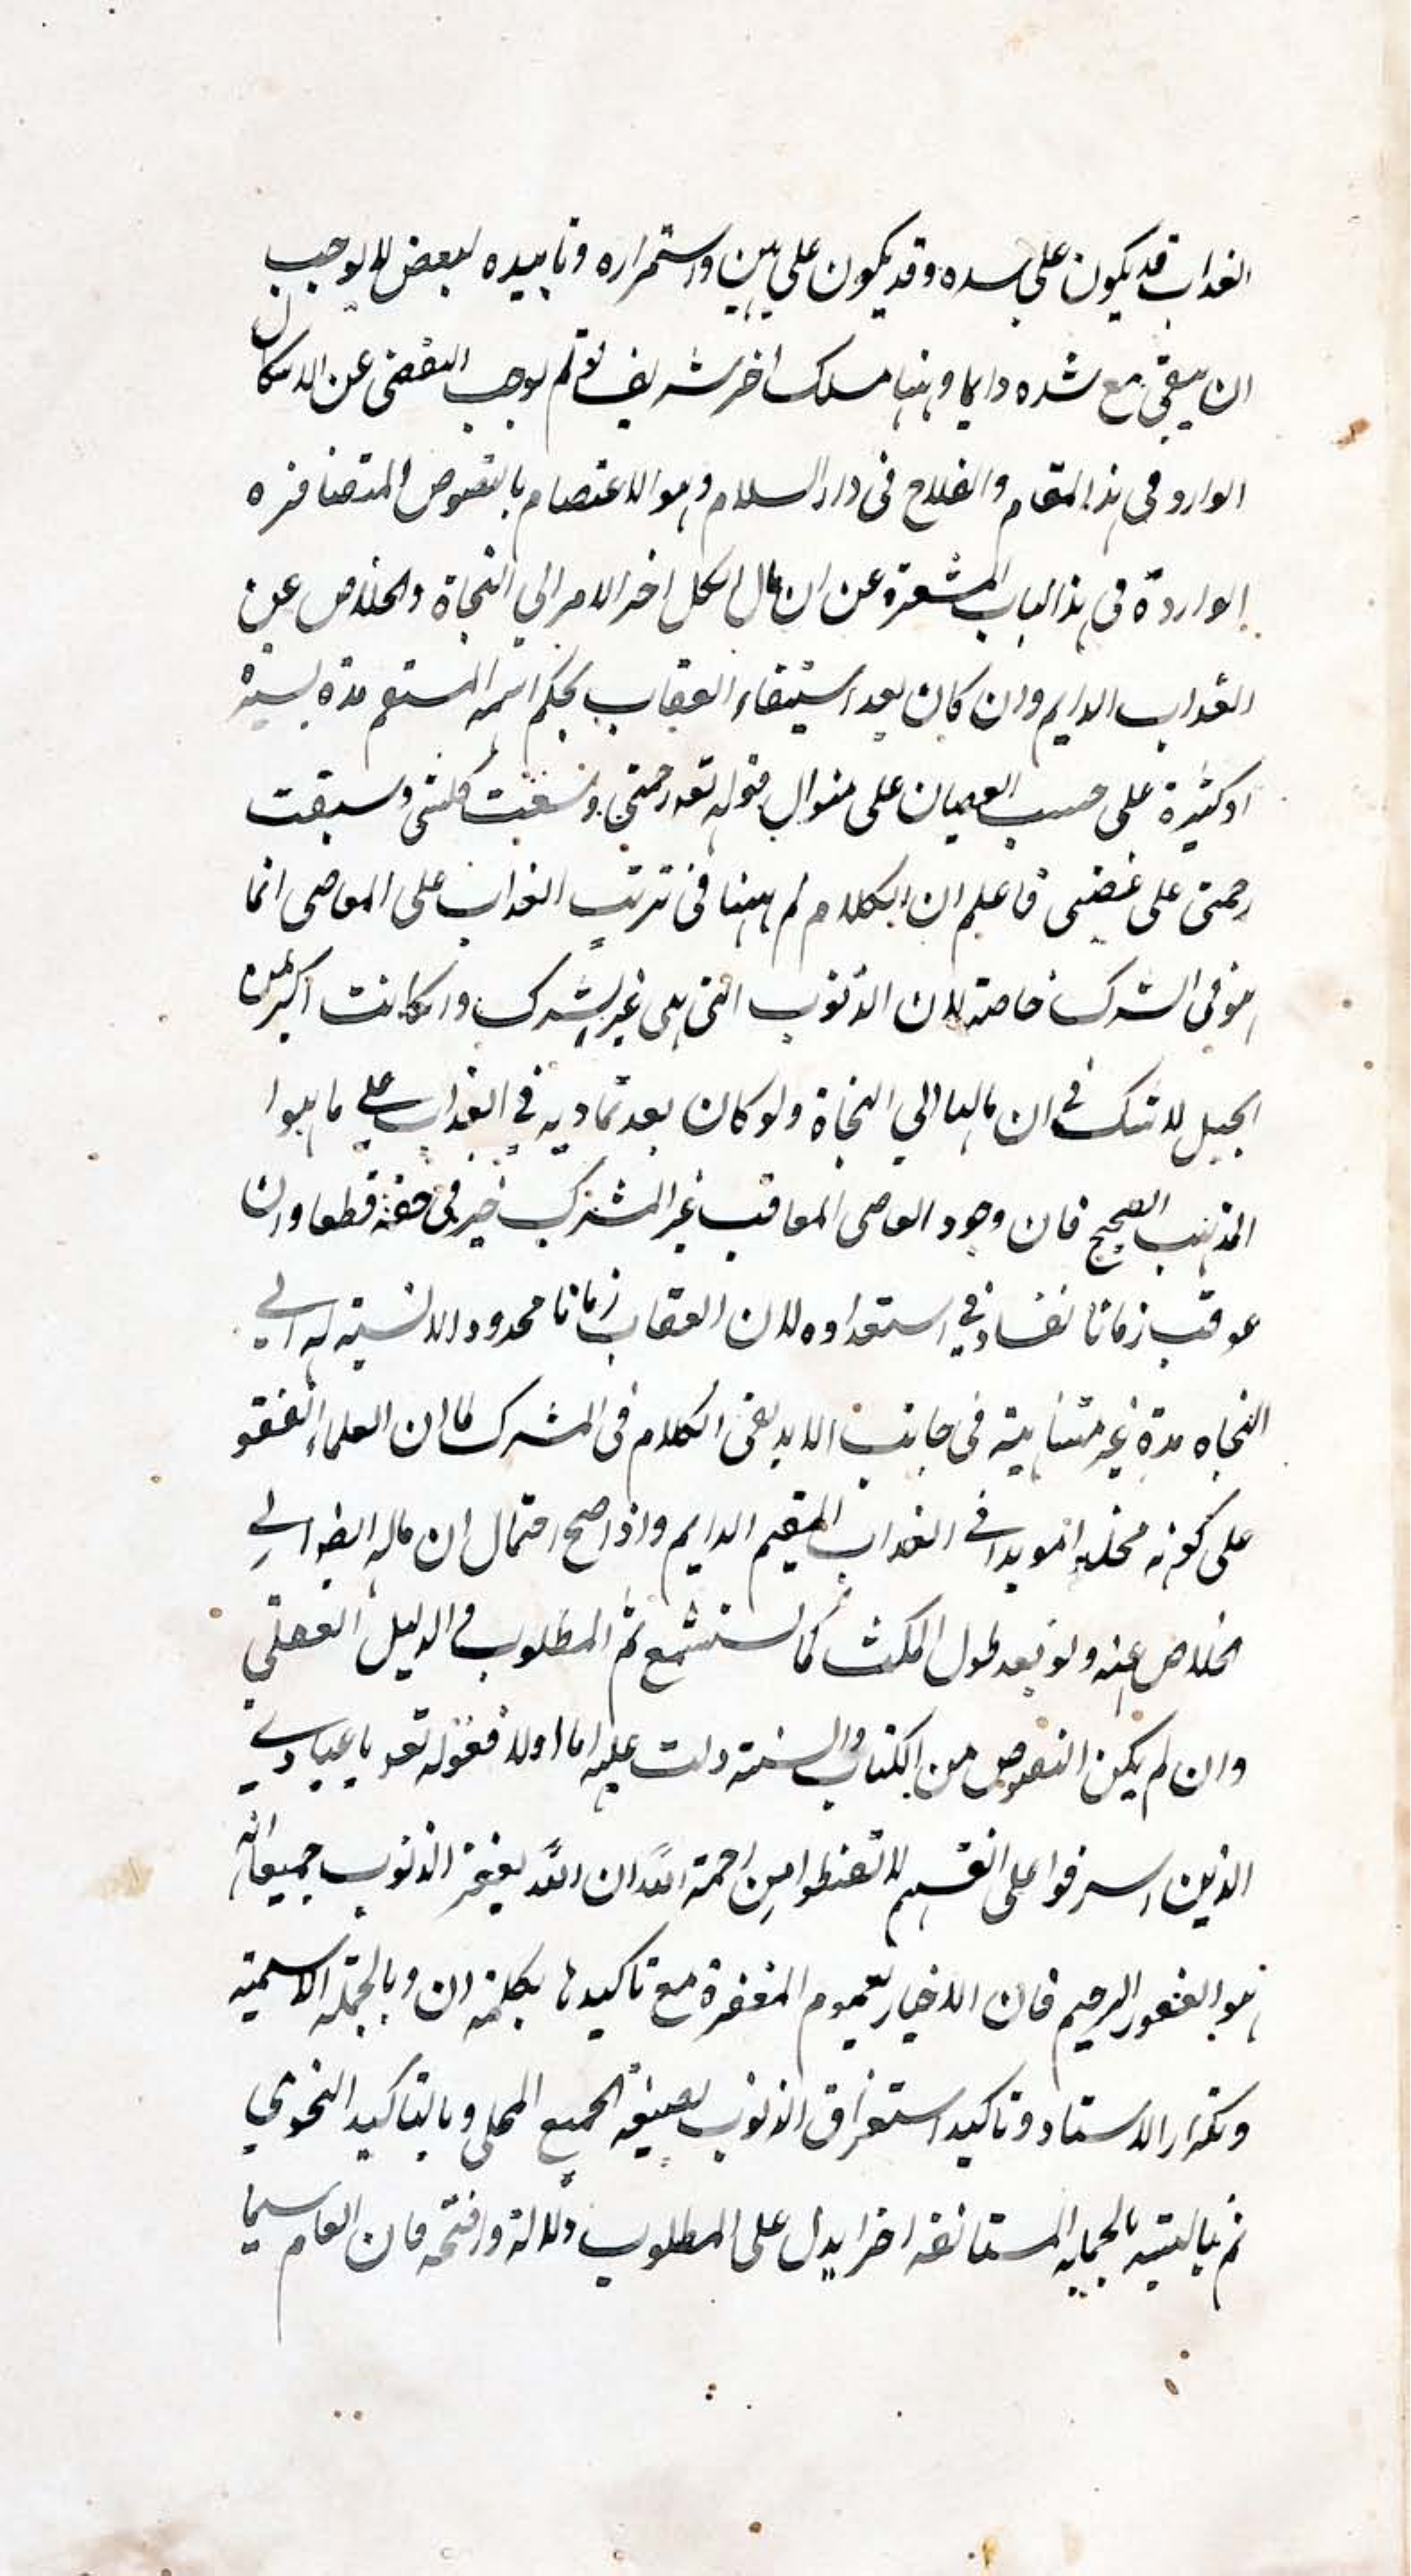 العذاب قد يكون على شده وقد يكون على هين واستمراره وتابيده لبعض لا يوجب
ان يبقى مع شده دايما وههنا مسلك اخر شريف لو تم يوجب التفصى عن الاشكال
الوارد في هذا المقام والفلاح فى دار السلام وهو الاعتصام بالنصوص المتضافره
الواردة فى هذا الباب المشعرة عن ان مال الكل اخر الامر الي النجاة والخلاص عن
العذاب الدايم وان كان بعد استيفاء العقاب بحكم اسمه المنتقم مدة يسيرة
او كثيرة على حسب العصيان على منوال قوله تعه رحمتي وسعت كلشى وسبقت
رحمتى على غضبى فاعلم ان الكلام ههنا فى ترتب العذاب على المعاصى انما
هو فى الشرك خاصة لان الذنوب التى هى غير الشرك وانكانت اكبر من
الجبل لا شك في ان مالها الي النجاة ولو كان بعد تماديه في العذاب علي ما هو
المذهب الصحيح فان وجود العاصى المعاقب غير المشرك خير فى حقه قطعا وان
عوقب زمانا لفساد في استعداده لان العقاب زمانا محدودا لا نسبة له الي
النجاه مدة غير متناهية فى جانب الابد بقى الكلام فى المشرك لما ان العلماء اتفقو
على كونه مخلدا مويدا في العذاب المقيم الدايم واذا صح احتمال ان ماله ايضا الي
الخلاص عنه ولو بعد طول المكث كما ستسمع تم المطلوب فى الدليل العقلي
وان لم يكن النصوص من الكتاب والسنة دلت عليه اما اولا فقوله تعه يا عبادي
الذين اسرفوا على انفسهم لا تقنطوا من رحمة الله ان الله يغفر الذنوب جميعا انه
هو الغفور الرحيم فان الاخبار بعموم المغفرة مع تاكيدها بكلمة ان وبالجمله الاسمية
وتكرار الاسناد وتاكيد استغراق الذنوب بصيغه الجمع المحلى وبالتاكيد النحوي
ثم بالجمله المستانفه اخرا يدل على المطلوب دلالة واضحه فان العام سيما